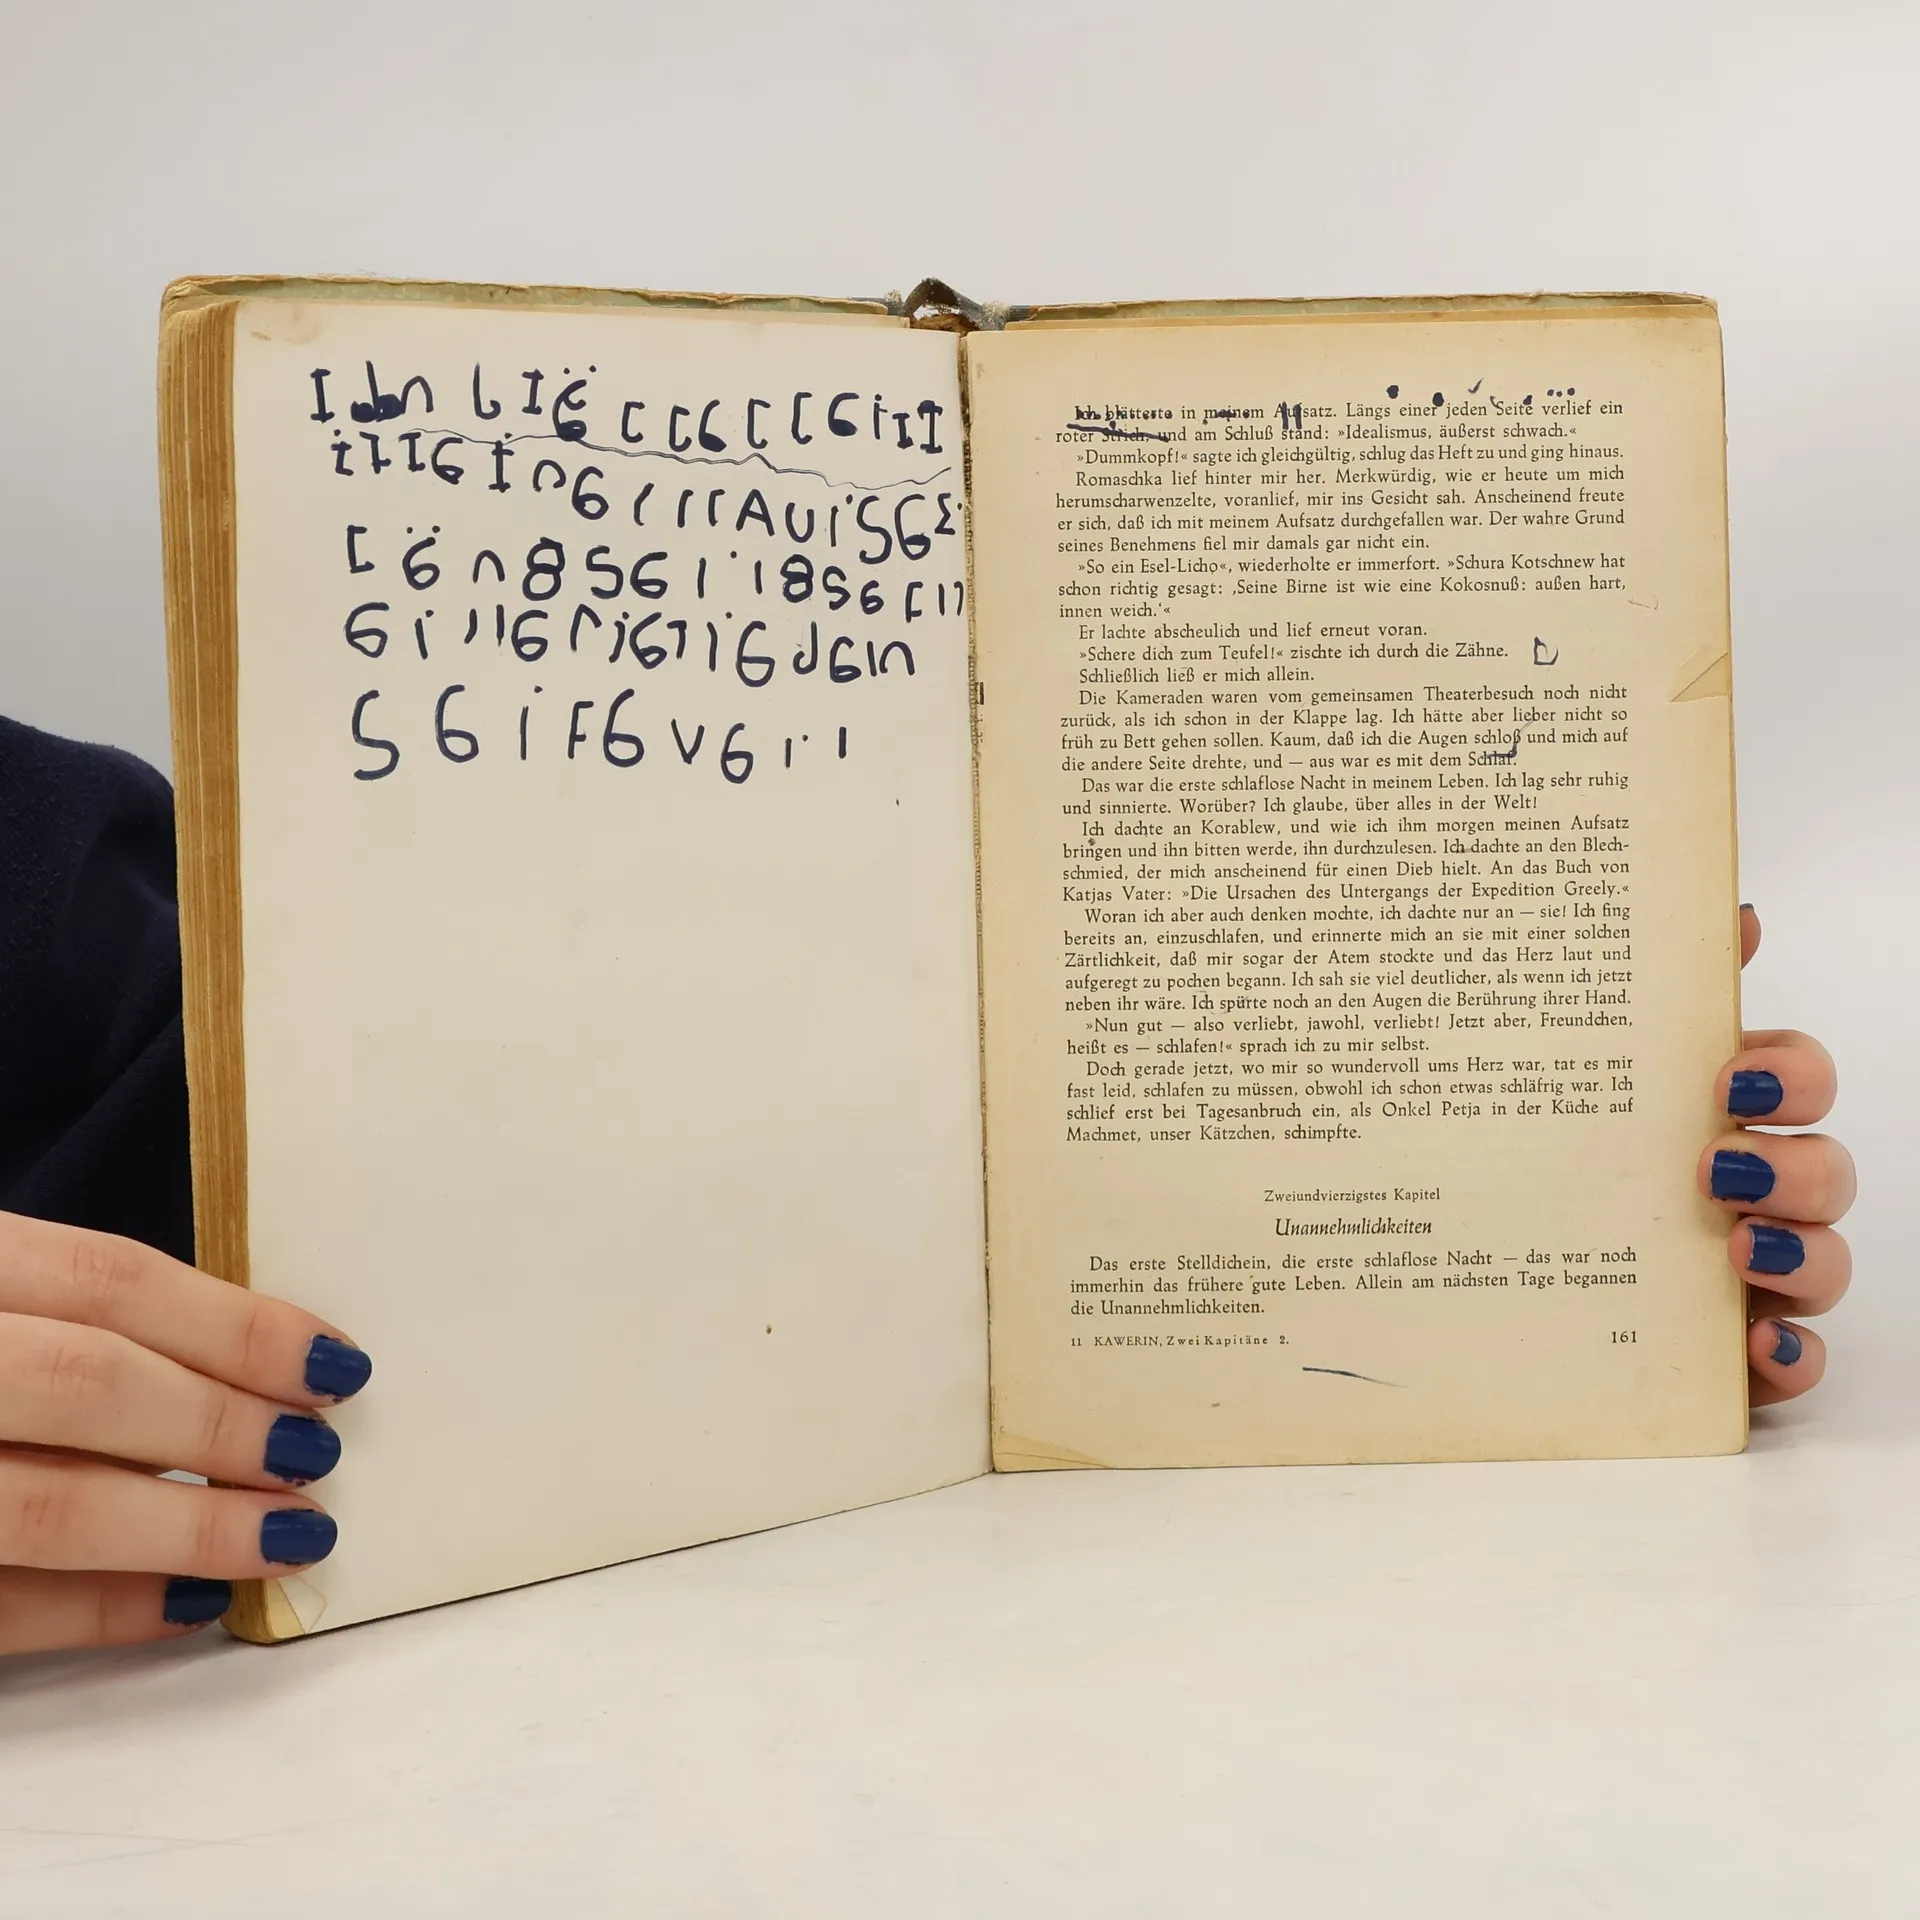 Ich blätterte in meinem Aufsatz. Längs einer jeden Seite verlief ein
roter Strich, und am Schluß stand: »Idealismus, äußerst schwach.«
»Dummkopf!« sagte ich gleichgültig, schlug das Heft zu und ging hinaus.
Romaschka lief hinter mir her. Merkwürdig, wie er heute um mich
herumscharwenzelte, voranlief, mir ins Gesicht sah. Anscheinend freute
er sich, daß ich mit meinem Aufsatz durchgefallen war. Der wahre Grund
seines Benehmens fiel mir damals gar nicht ein.
»So ein Esel-Licho«, wiederholte er immerfort. »Schura Kotschnew hat
schon richtig gesagt: ‚Seine Birne ist wie eine Kokosnuß: außen hart,
innen weich.‘«
Er lachte abscheulich und lief erneut voran.
»Schere dich zum Teufel!« zischte ich durch die Zähne.
Schließlich ließ er mich allein.
Die Kameraden waren vom gemeinsamen Theaterbesuch noch nicht
zurück, als ich schon in der Klappe lag. Ich hätte aber lieber nicht so
früh zu Bett gehen sollen. Kaum, daß ich die Augen schloß und mich auf
die andere Seite drehte, und — aus war es mit dem Schlaf.
Das war die erste schlaflose Nacht in meinem Leben. Ich lag sehr ruhig
und sinnierte. Worüber? Ich glaube, über alles in der Welt!
Ich dachte an Korablew, und wie ich ihm morgen meinen Aufsatz
bringen und ihn bitten werde, ihn durchzulesen. Ich dachte an den Blech-
schmied, der mich anscheinend für einen Dieb hielt. An das Buch von
Katjas Vater: »Die Ursachen des Untergangs der Expedition Greely.«
Woran ich aber auch denken mochte, ich dachte nur an — sie! Ich fing
bereits an, einzuschlafen, und erinnerte mich an sie mit einer solchen
Zärtlichkeit, daß mir sogar der Atem stockte und das Herz laut und
aufgeregt zu pochen begann. Ich sah sie viel deutlicher, als wenn ich jetzt
neben ihr wäre. Ich spürte noch an den Augen die Berührung ihrer Hand.
»Nun gut — also verliebt, jawohl, verliebt! Jetzt aber, Freundchen,
heißt es — schlafen!« sprach ich zu mir selbst.
Doch gerade jetzt, wo mir so wundervoll ums Herz war, tat es mir
fast leid, schlafen zu müssen, obwohl ich schon etwas schläfrig war. Ich
schlief erst bei Tagesanbruch ein, als Onkel Petja in der Küche auf
Machmet, unser Kätzchen, schimpfte.
Zweiundvierzigstes Kapitel
Unannehmlichkeiten
Das erste Stelldichein, die erste schlaflose Nacht — das war noch
immerhin das frühere gute Leben. Allein am nächsten Tage begannen
die Unannehmlichkeiten.
11 KAWERIN, Zwei Kapitäne 2.
161